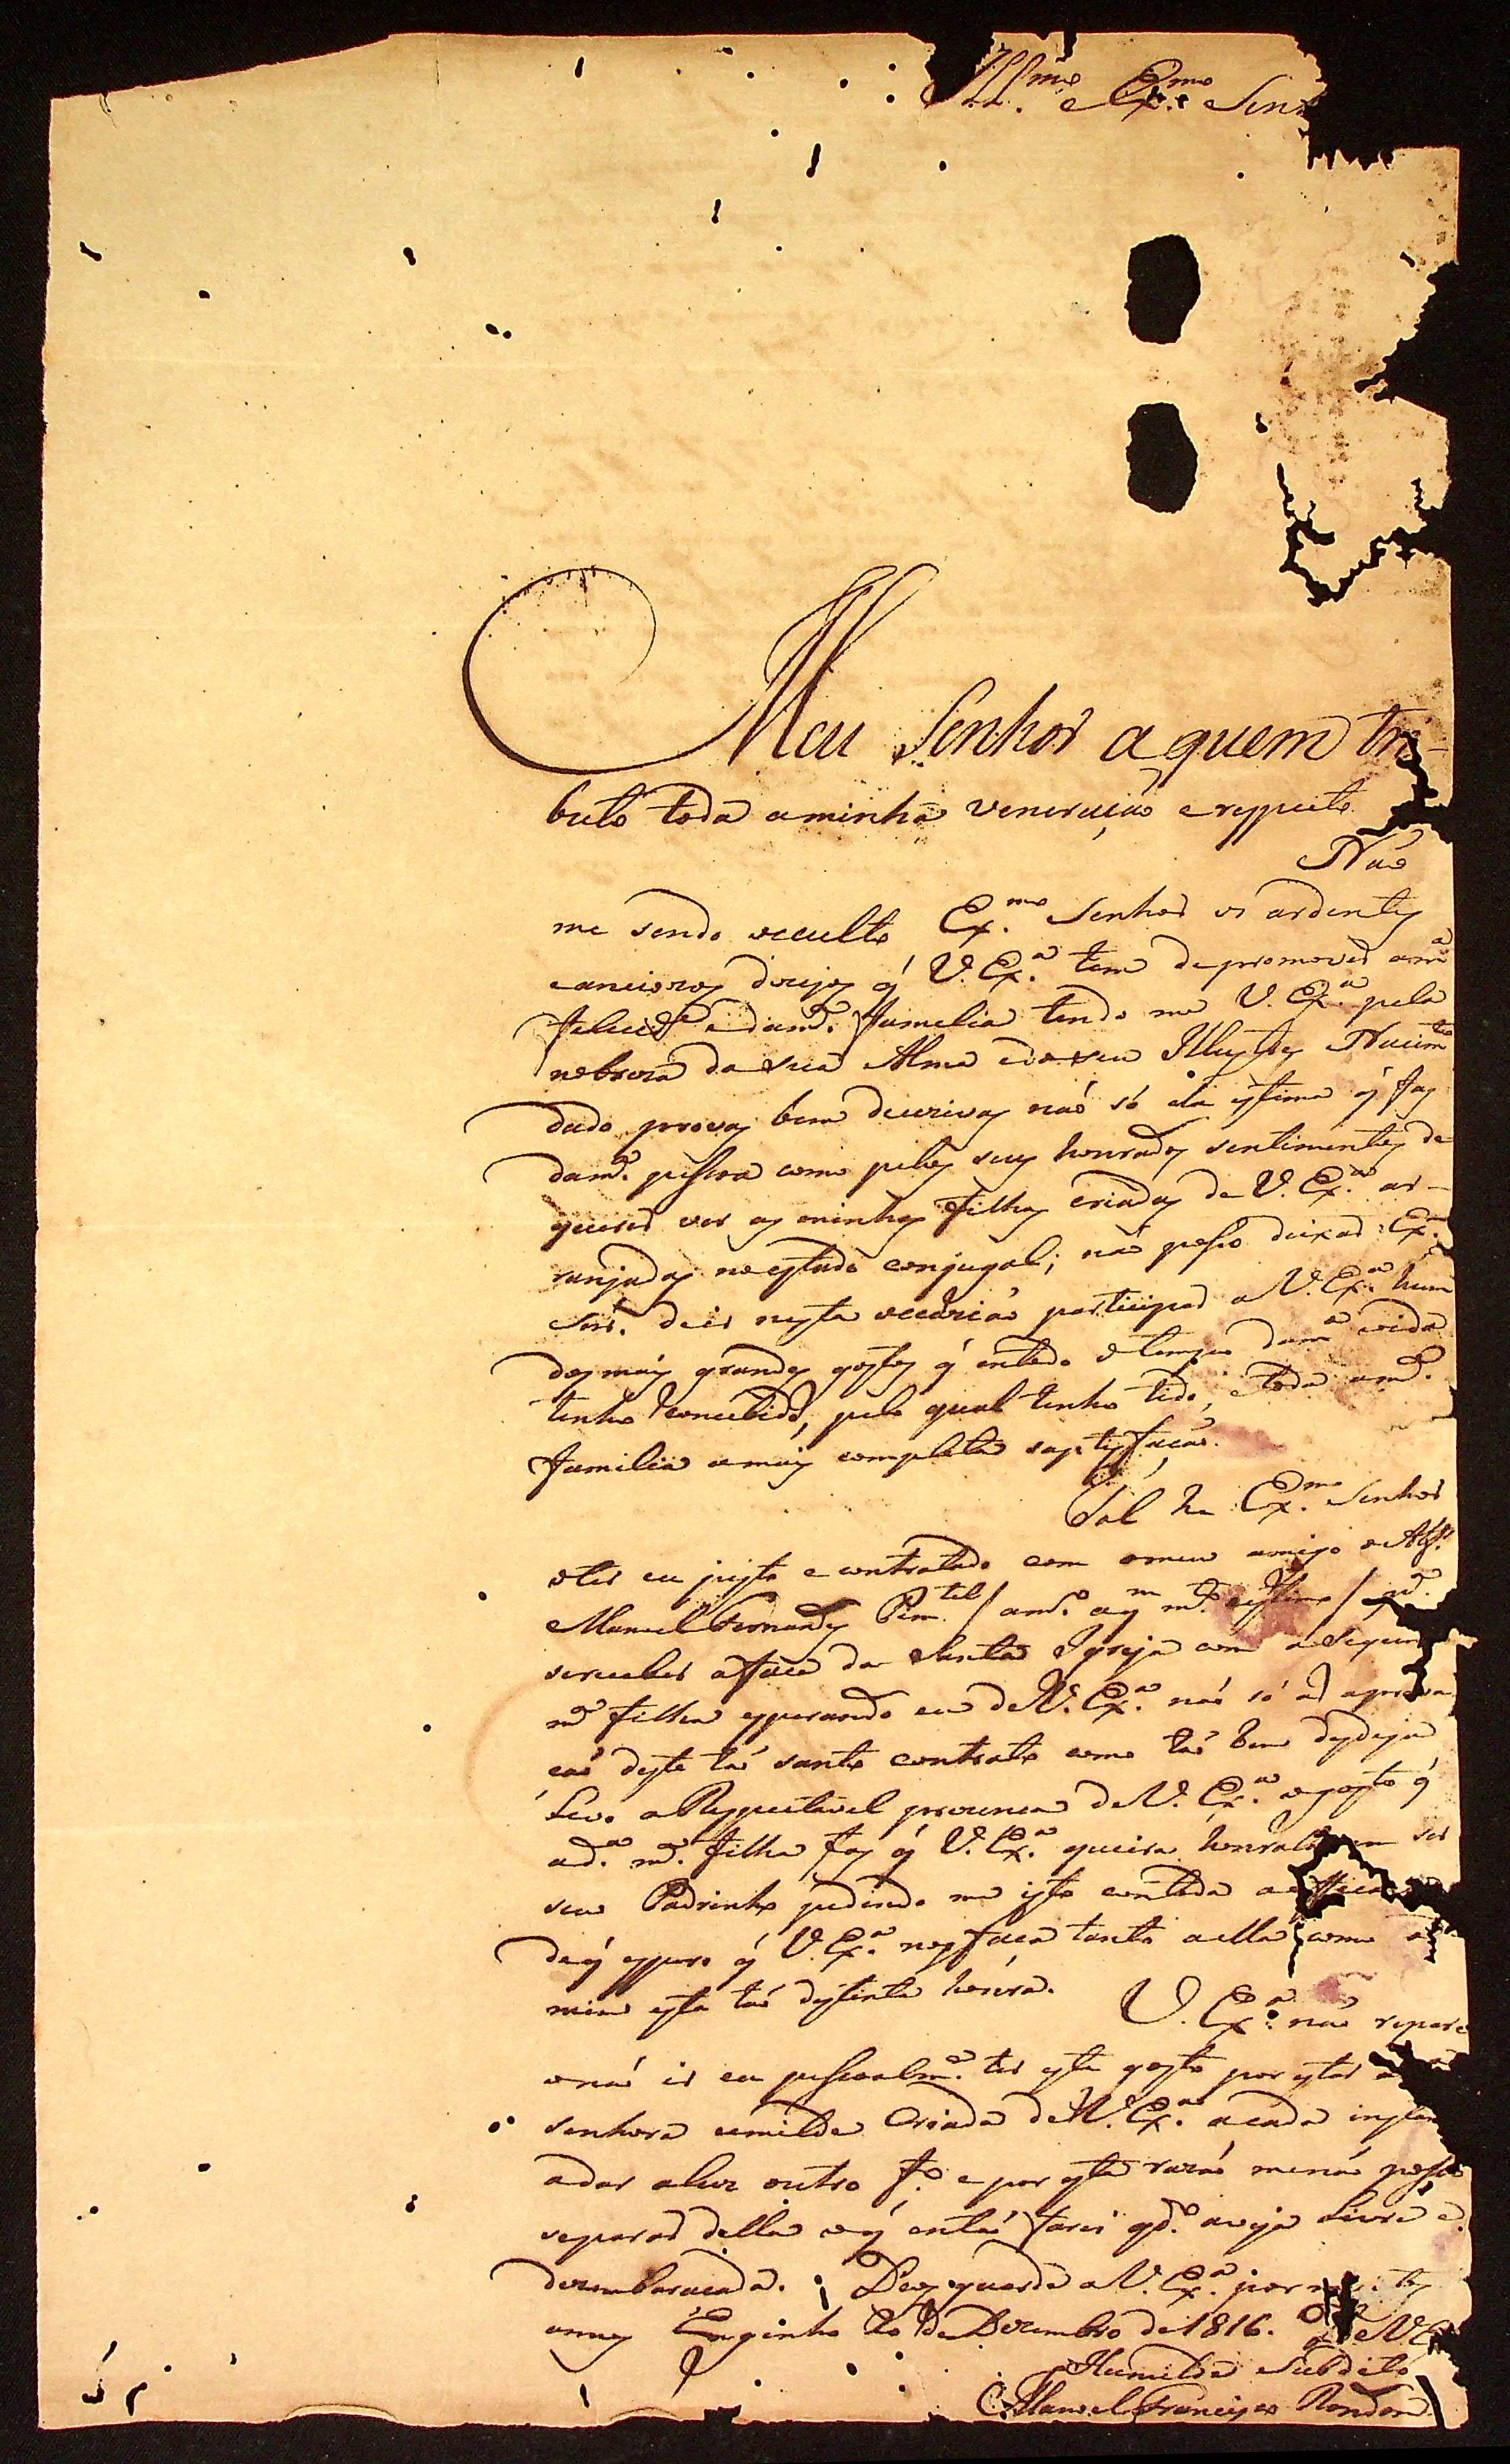 Ill.mo e Ex.mo Senh
Meu Senhor a quem tri-
buto toda aminha veneração e respeito.
Não
me sendo occulto Ex.mo Senhor os ardentes
eanciozos dezejos q̃ V. Ex.a tem depromover am.a
felecid.e edam.a Familia tendo me V. Ex.a pela
nobreza da sua Alma edoseu Illustre Nacim.to
dado provas bem decizivas não só da estima q̃ faz
dam.a pessoa como pelos seus honrados sentimentos de
querer ver as minhas Filhas criadas de V. Ex.a ar-
ranjadas noestado conjugal; não posso deixar Ex.mo
Snr. de nesta occazião participar a V. Ex.a hum
dos mais grandes gostos q̃ entodo otempo dam.a vida
tenho concebido, pelo qual tenho tido, etoda am.a
Familia amais completa sastisfação.
Tal he Ex.mo Senhor
oter eu justo e contratado com omeu amigo o Alf.s
Manoel Fernandes Pim.tel / am.o aq.m m.to estimo / p.a
serecebes aface da Santa Igreja com a Segun
m.a Filha esperando eu de V. Ex.a não só ad aprova
cão deste tão santo contrato como tão bem dezeja
Levo a Respeitavel prezença de V. Ex.a ogosto q̃
ad.a m.a Filha faz q̃ V. Ex.a queira honrala em ser
seu Padrinho pedindo me isto contoda aefficacia
deq̃ espero q̃ V. Ex.a nosfaça tanto aella como a
mim esta tão destinta honra. V. Ex.a não repare
onão ir eu pessoalm.e ter este gosto por estar a
senhora umilde Criada de V. Ex.a acada instan
adar aluz outro f.o e por esta razão menão posso
separar della oq̃ então farei q.do aveja Livre e
dezembaraçada. Deos guarde a V. Ex.a por m. tos
annos Enginho 20 de Dezembro de 1816. De V. Ex
Humilde Subdito
Manoel Francisco Rondon